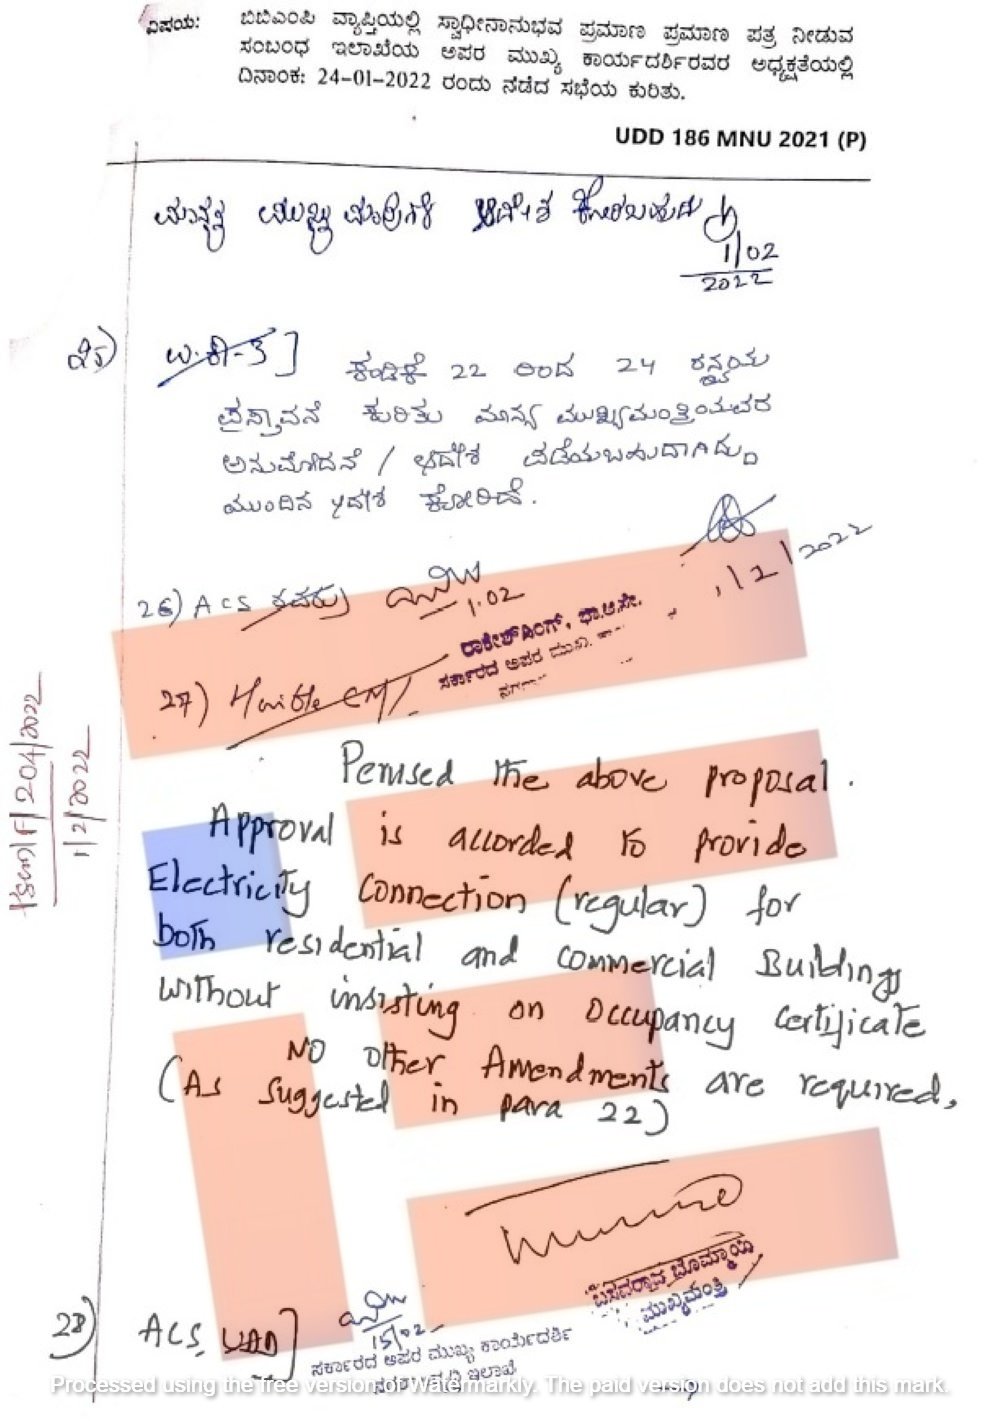 ವಿಷಯ: ಬಿಬಿಎಂಪಿ ವ್ಯಾಪ್ತಿಯಲ್ಲಿ ಸ್ವಾಧೀನಾನುಭವ ಪ್ರಮಾಣ ಪ್ರಮಾಣ ಪತ್ರ ನೀಡುವ
ಸಂಬಂಧ ಇಲಾಖೆಯ ಅಪರ ಮುಖ್ಯ ಕಾರ್ಯದರ್ಶಿರವರ ಅಧ್ಯಕ್ಷತೆಯಲ್ಲಿ
ದಿನಾಂಕ: 24-01-2022 ರಂದು ನಡೆದ ಸಭೆಯ ಕುರಿತು.
UDD 186 MNU 2021 (P)
ಆದೇಶ ಕೋರಬಹುದು
1/02
2022
25)
ಕಂಡಿಕೆ 22 ರಿಂದ 24 ರನ್ವಯ
ಪ್ರಸ್ತಾವನೆ ಕುರಿತು ಮಾನ್ಯ ಮುಖ್ಯಮಂತ್ರಿಯವರ
ಅನುಮೋದನೆ / ಆದೇಶ ಪಡೆಯಬಹುದಾಗಿದ್ದು
ಮುಂದಿನ ಆದೇಶ ಕೋರಿದೆ.
1/2/2022
26) ACS ರವರು
1.02
ರಾಕೇಶ್ ಸಿಂಗ್, ಭಾ.ಆ.ಸೇ.
ಸರ್ಕಾರದ ಅಪರ ಮುಖ್ಯ
27) Hon'ble CM
204/2022
1/2/2022
Perused the above proposal.
Approval is accorded to provide
Electricity Connection (regular) for
both residential and commercial Buildings
without insisting on Occupancy Certificate
NO other Amendments are required,
(As suggested in para 22)
ಬಸವರಾಜ ಬೊಮ್ಮಾಯಿ
ಮುಖ್ಯಮಂತ್ರಿ
28) ACS, UDD
15/02
ಸರ್ಕಾರದ ಅಪರ ಮುಖ್ಯ ಕಾರ್ಯದರ್ಶಿ
ಇಲಾಖೆ
Processed using the free version of Watermarkly. The paid version does not add this mark.